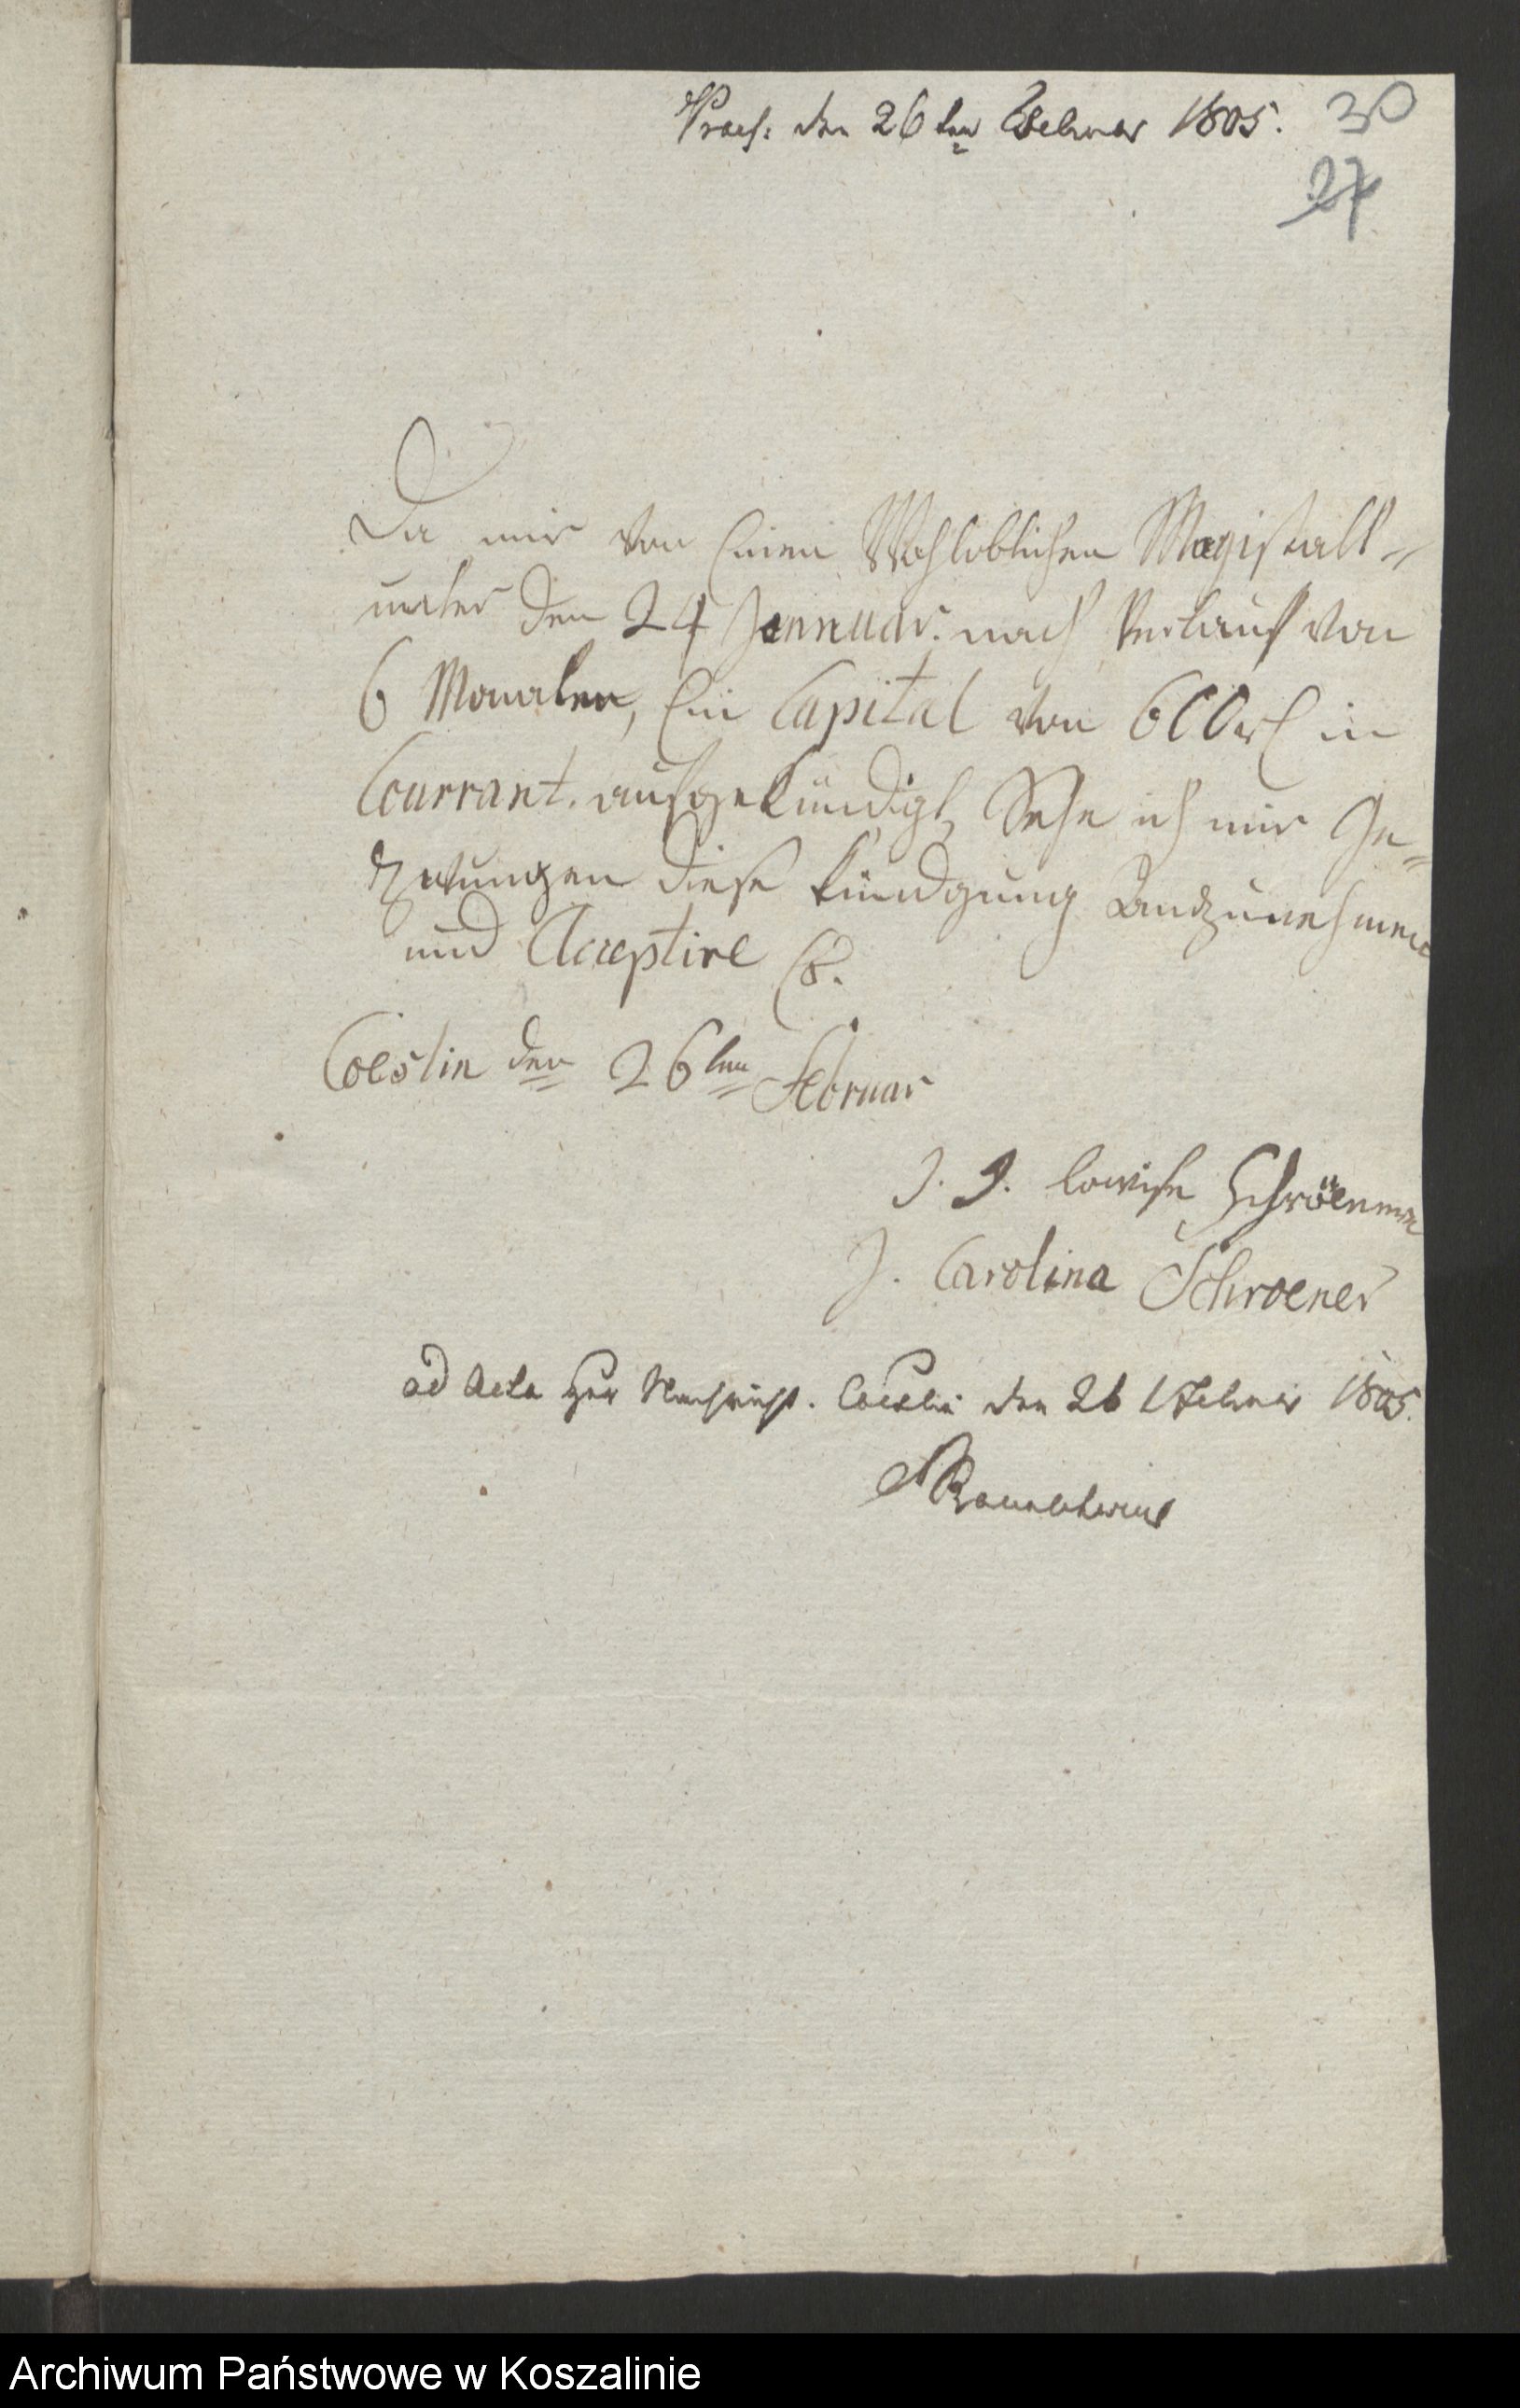 Praes: den 26ten Februar 1805.
30
27
Da mir von Einen Wohloblichen Magistratt
unter den 24 Jannuar. nach Verlauf von
6 Monaten, Ein Capital von 600 rl in
Courrant. aufgekündigt, Sehe ich mir Ge-
zwungen diese kündgung anzunehmen
und Acceptire Es.
Coeslin den 26ten Februar
J. J. Lowise Schröenern
J. Carolina Schroener
ad Acta zur Nachricht. Coeslin den 26 Februar 1805.
Archiwum Państwowe w Koszalinie